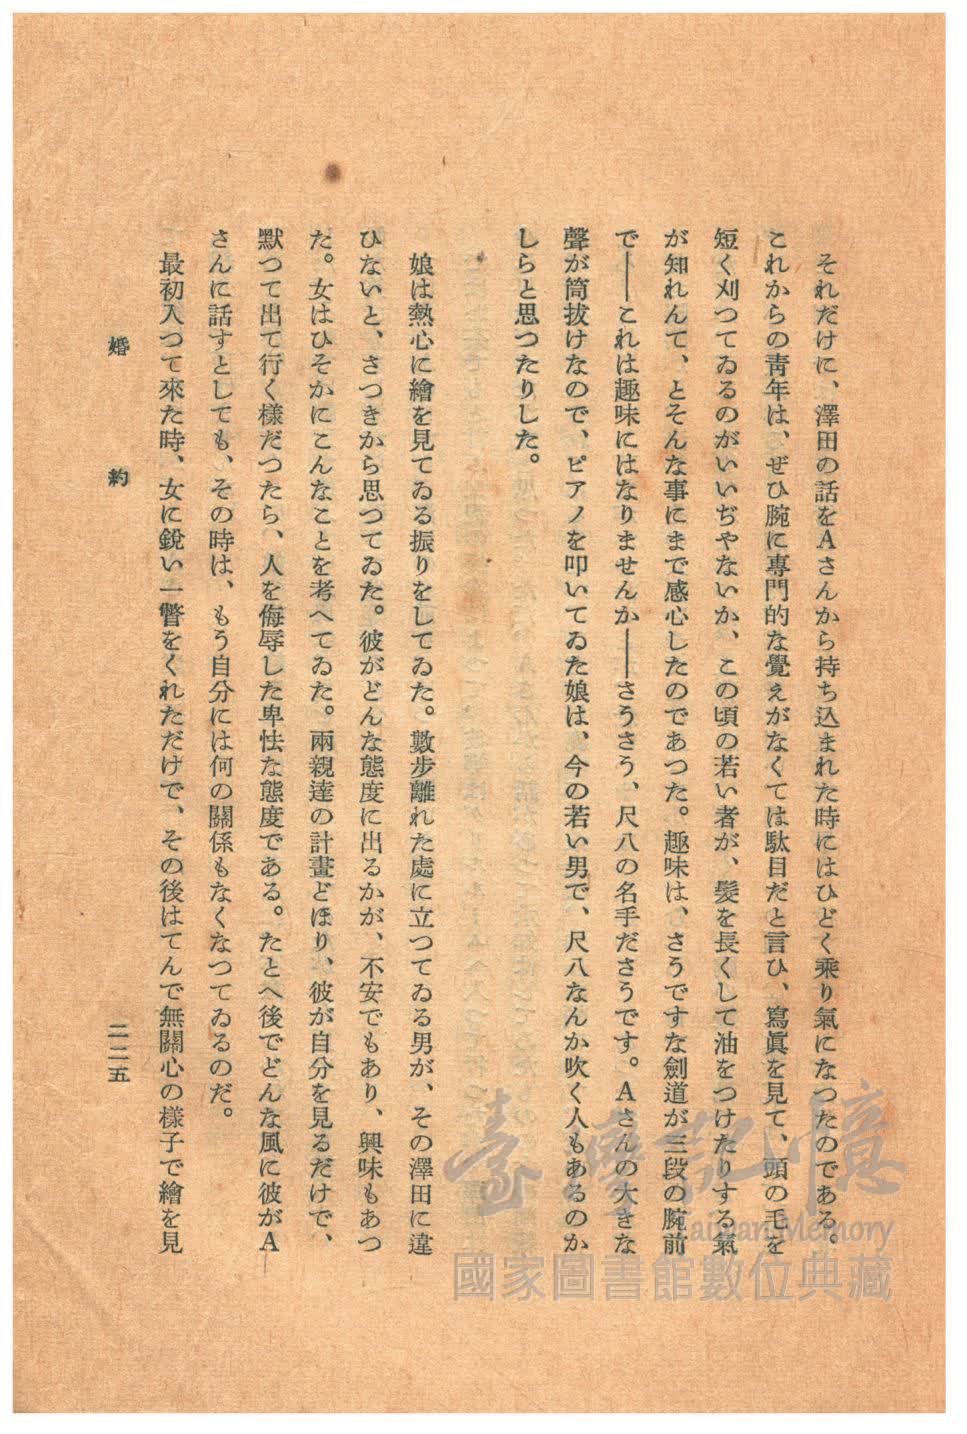 それだけに、澤田の話をAさんから持ち込まれた時にはひどく乘り氣になつたのである。
これからの靑年は、ぜひ腕に專門的な覺えがなくては駄目だと言ひ、寫眞を見て、頭の毛を
短く刈つてゐるのがいいぢやないか、この頃の若い者が、髮を長くして油をつけたりする氣
が知れんて、とそんな事にまで感心したのであつた。趣味は、さうですな劍道が三段の腕前
で――これは趣味にはなりませんか――さうさう、尺八の名手ださうです。Aさんの大きな
聲が筒拔けなので、ピアノを叩いてゐた娘は、今の若い男で、尺八なんか吹く人もあるのか
しらと思つたりした。
娘は熱心に繪を見てゐる振りをしてゐた。數步離れた處に立つてゐる男が、その澤田に違
ひないと、さつきから思つてゐた。彼がどんな態度に出るかが、不安でもあり、興味もあつ
た。女はひそかにこんなことを考へてゐた。兩親達の計畫どほり、彼が自分を見るだけで、
默つて出て行く樣だつたら、人を侮辱した卑怯な態度である。たとへ後でどんな風に彼がA
さんに話すとしても、その時は、もう自分には何の關係もなくなつてゐるのだ。
最初入つて來た時、女に銳い一瞥をくれただけで、その後はてんで無關心の樣子で繪を見
婚約
二二五
臺灣記憶
Taiwan Memory
國家圖書館數位典藏